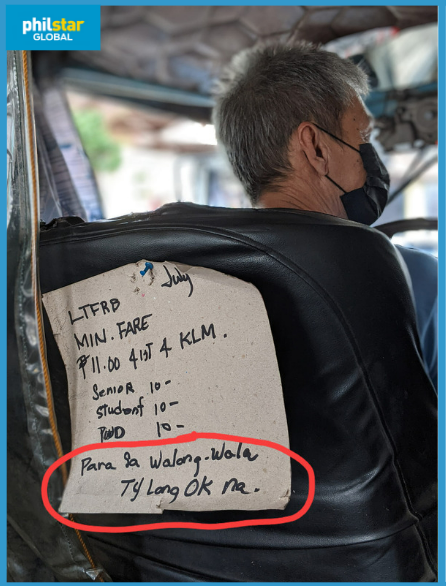 philstar
GLOBAL
July
LTFRB
MIN. FARE
₱11.00 4 1ST 4 KLM.
Senior 10-
Student 10-
PWD 10-
Para Sa Walang-Wala
TY Lang OK na.